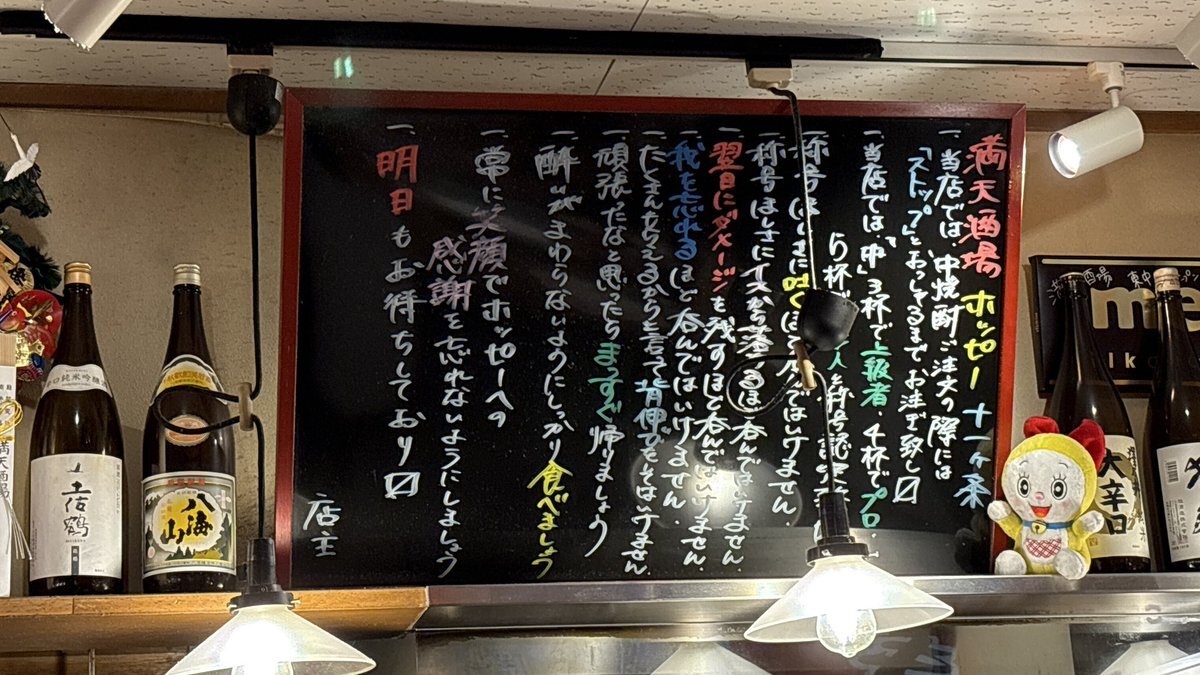 満天酒場 ホッピー 十一ヶ条
一、当店では、中焼酎ご注文の際には
「ストップ」とおっしゃるまでお注ぎ致し〼
一、当店では、「中」3杯で上級者、4杯でプロ、
5杯で 人と称号認定
一、称号ほしさに吐くほど呑んではいけません。
一、称号ほしさにイスから落ちるほど呑んではいけません。
一、翌日にダメージを残すほど呑んではいけません。
一、我を忘れるほど呑んではいけません。
一、たくさんもらえるからと言って背伸びもそはいけません。
一、頑張ったなと思ったらまっすぐ帰りましょう
一、酔いがまわらないようにしっかり食べましょう
一、常に笑顔でホッピーへの
感謝を忘れないようにしましょう
一、明日もお待ちしており〼
店主
純米吟醸
土佐鶴
八海山
大辛口
満天酒場
酒場
me